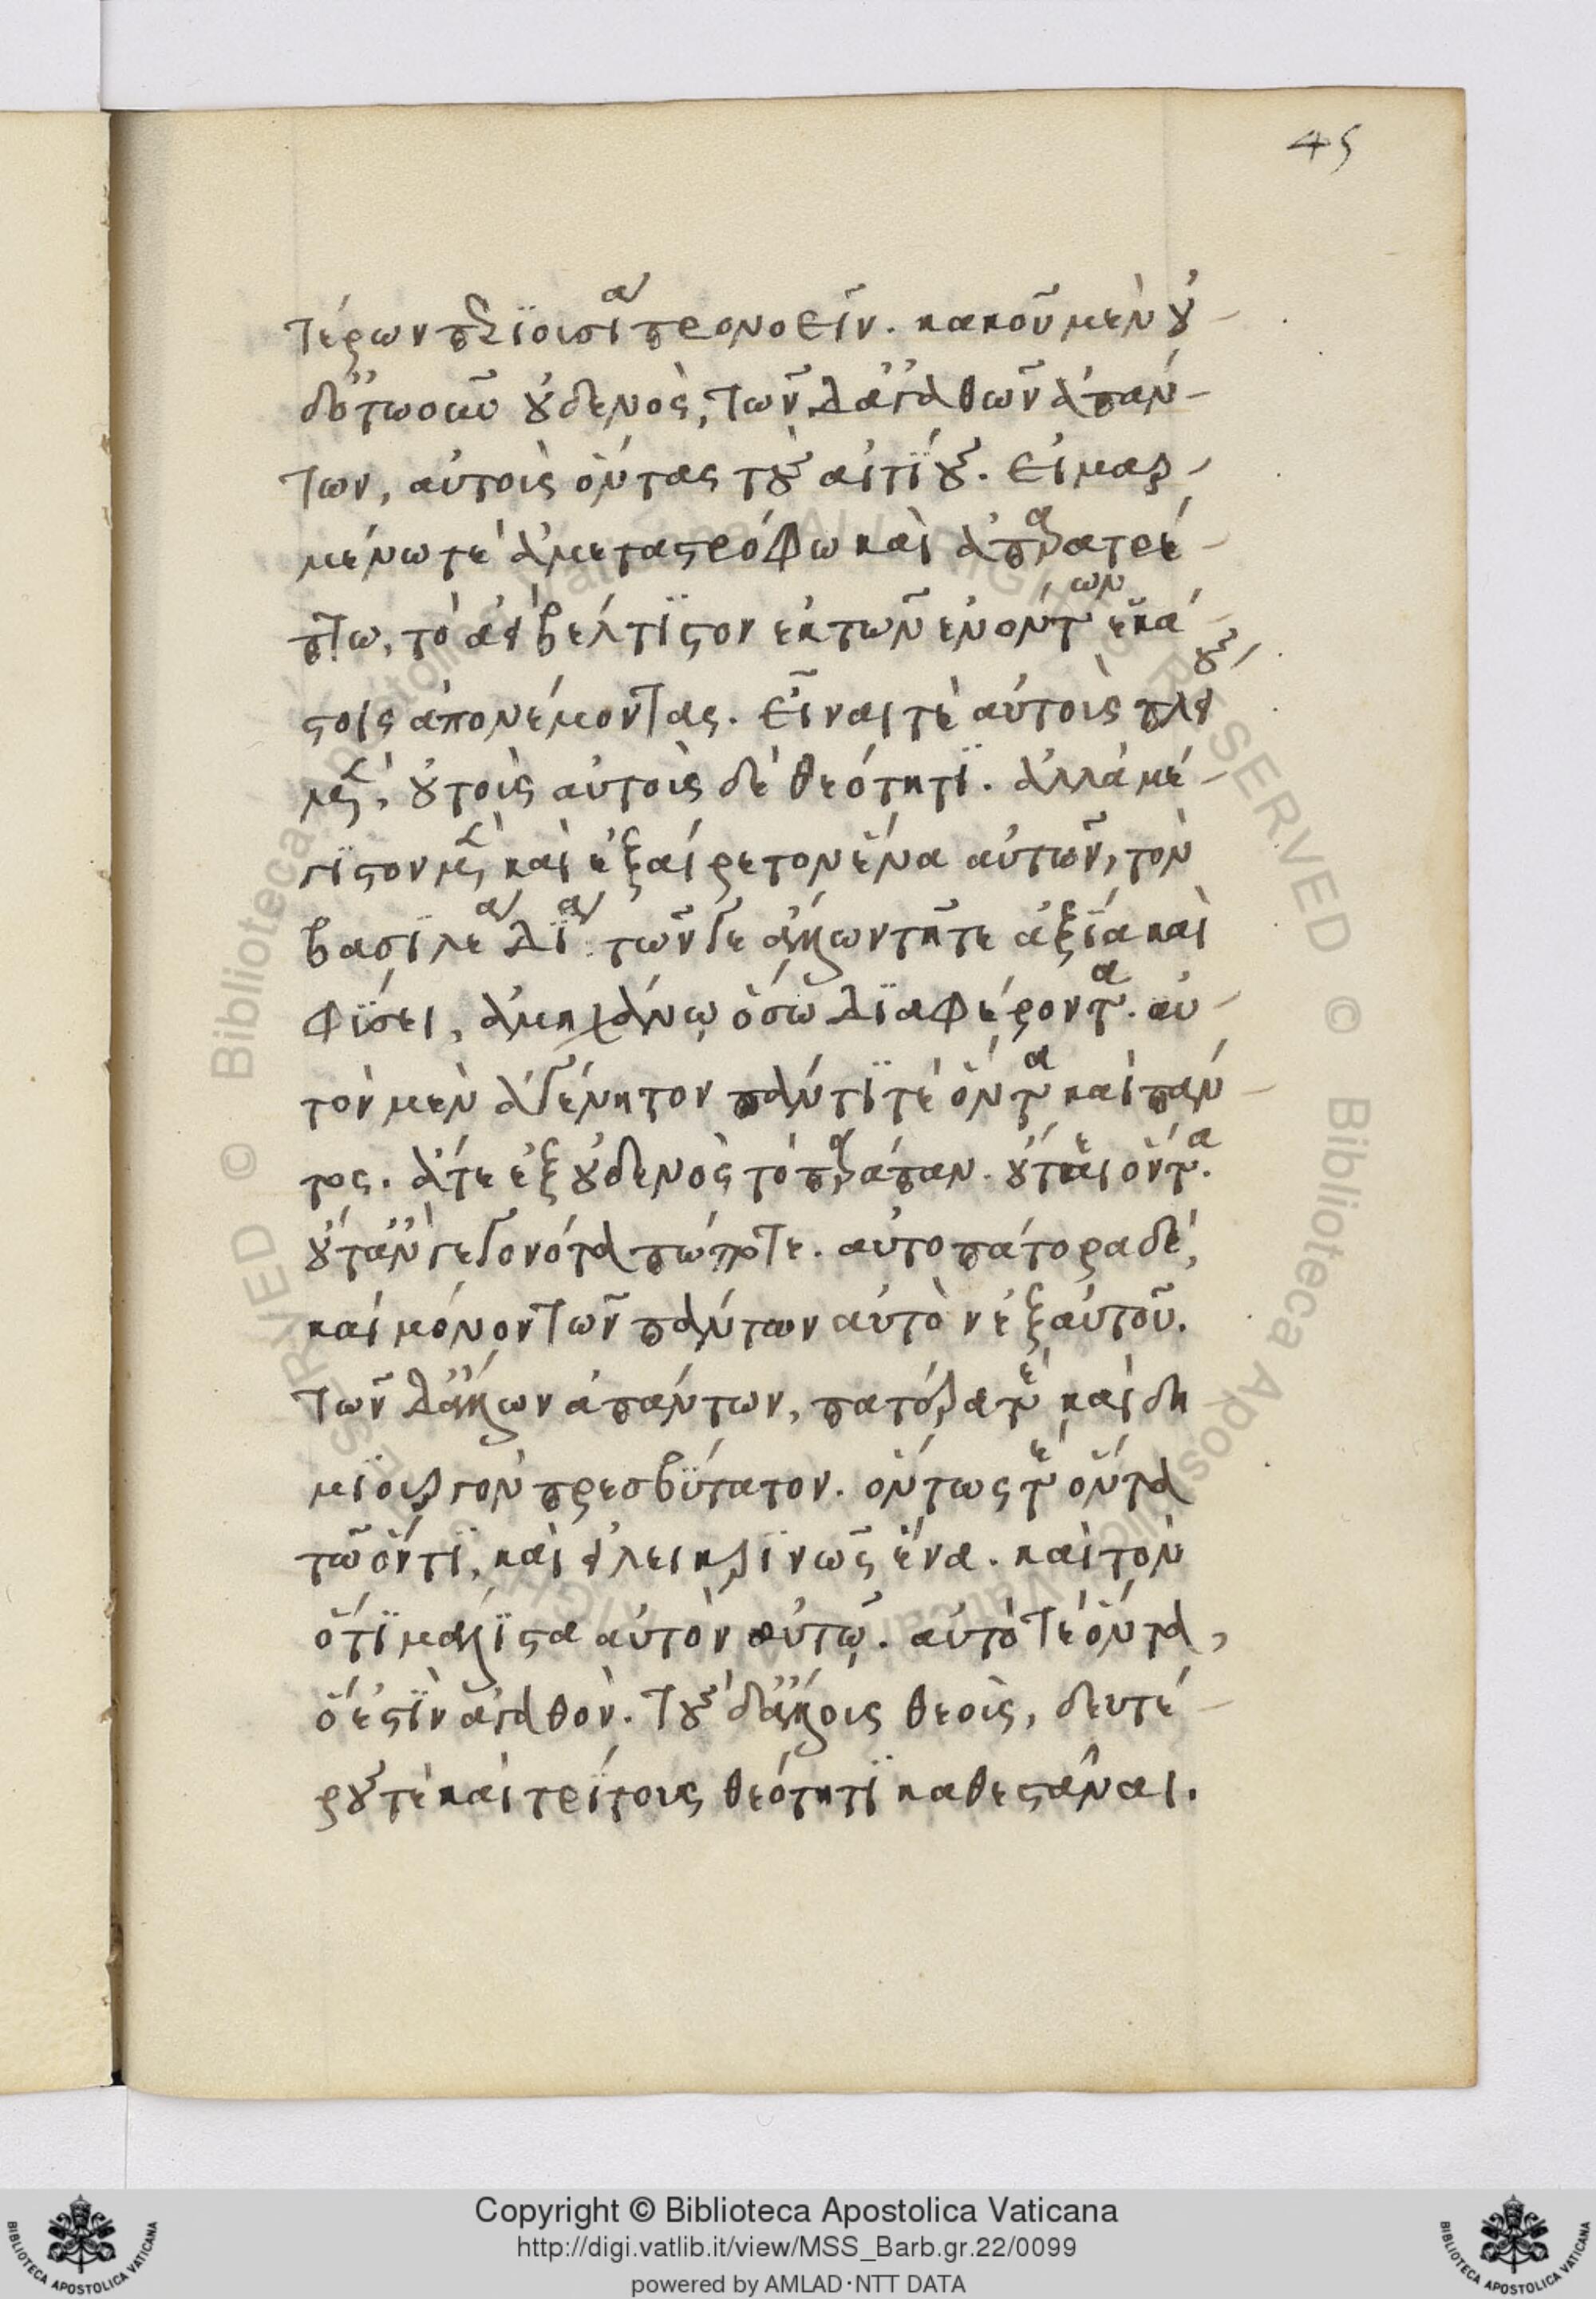 45
τέρων πλείοσι προνοεῖν. κακοῦ μὲν οὐ
δ' ὁτωοῦν οὐδενὸς, τῶν δ' ἀγαθῶν ἁπάν
των, αὐτοὺς ὄντας τοὺς αἰτίους. εἱμαρ
μένω τὲ ἀμεταστρόφω καὶ ἀπαρατρέ
πτω, τὸ ἀεὶ βέλτιστον ἐκ τῶν ἐνόντων ἑκά
στοις ἀπονέμοντας. εἶναι τὲ αὐτοὺς πλεί
ους μὲν, οὐ τοὺς αὐτοὺς δὲ θεότητι. ἀλλὰ μέ
γιστον μὲν καὶ ἐξαίρετον ἕνα αὐτῶν, τὸν
βασιλέα Δία τῶν γε ἄλλων τῆ τε ἀξία καὶ
φύσει, ἀμηχάνω ὅσω διαφέροντα. αὐ
τὸν μὲν ἀγένητον πάντι τὲ ὄντα καὶ πάν
τως. ἅτε ἐξ οὐδενὸς τὸ παράπαν. οὔτε καὶ ὄντα.
οὔτ' ἂν γεγονότα πώποτε. αὐτοπάτορα δὲ,
καὶ μόνον τῶν πάντων αὐτὸν ἐξ αὑτοῦ.
τῶν δ' ἄλλων ἁπάντων, πατέρα τὲ καὶ δη
μιουργὸν πρεσβύτατον. ὄντως τὲ ὄντα
τῶ ὄντι, καὶ εἰλεικρινῶς ἕνα. καὶ τὸν
ὅτι μάλιστα αὐτὸν αὑτῷ. αὐτό τε ὄντα,
ὅ ἐστιν ἀγαθὸν. τοὺς δ' ἄλλοις θεοὺς, δευτέ
ρους τὲ καὶ τρίτους θεότητι καθεστάναι.
Copyright © Biblioteca Apostolica Vaticana
http://digi.vatlib.it/view/MSS_Barb.gr.22/0099
powered by AMLAD·NTT DATA